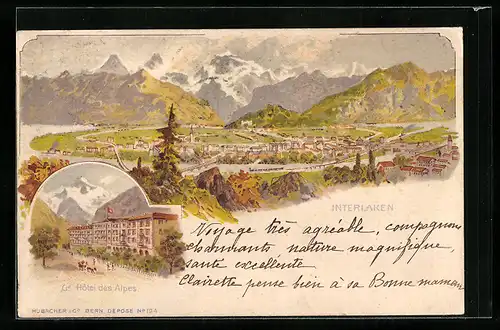 INTERLAKEN
Voyage très agréable, compagnons
charmants nature magnifique,
santé excellente
Clairette pense bien à sa Bonne maman
Gd Hôtel des Alpes.
HUBACHER & Cie BERN DEPOSÉ No 124